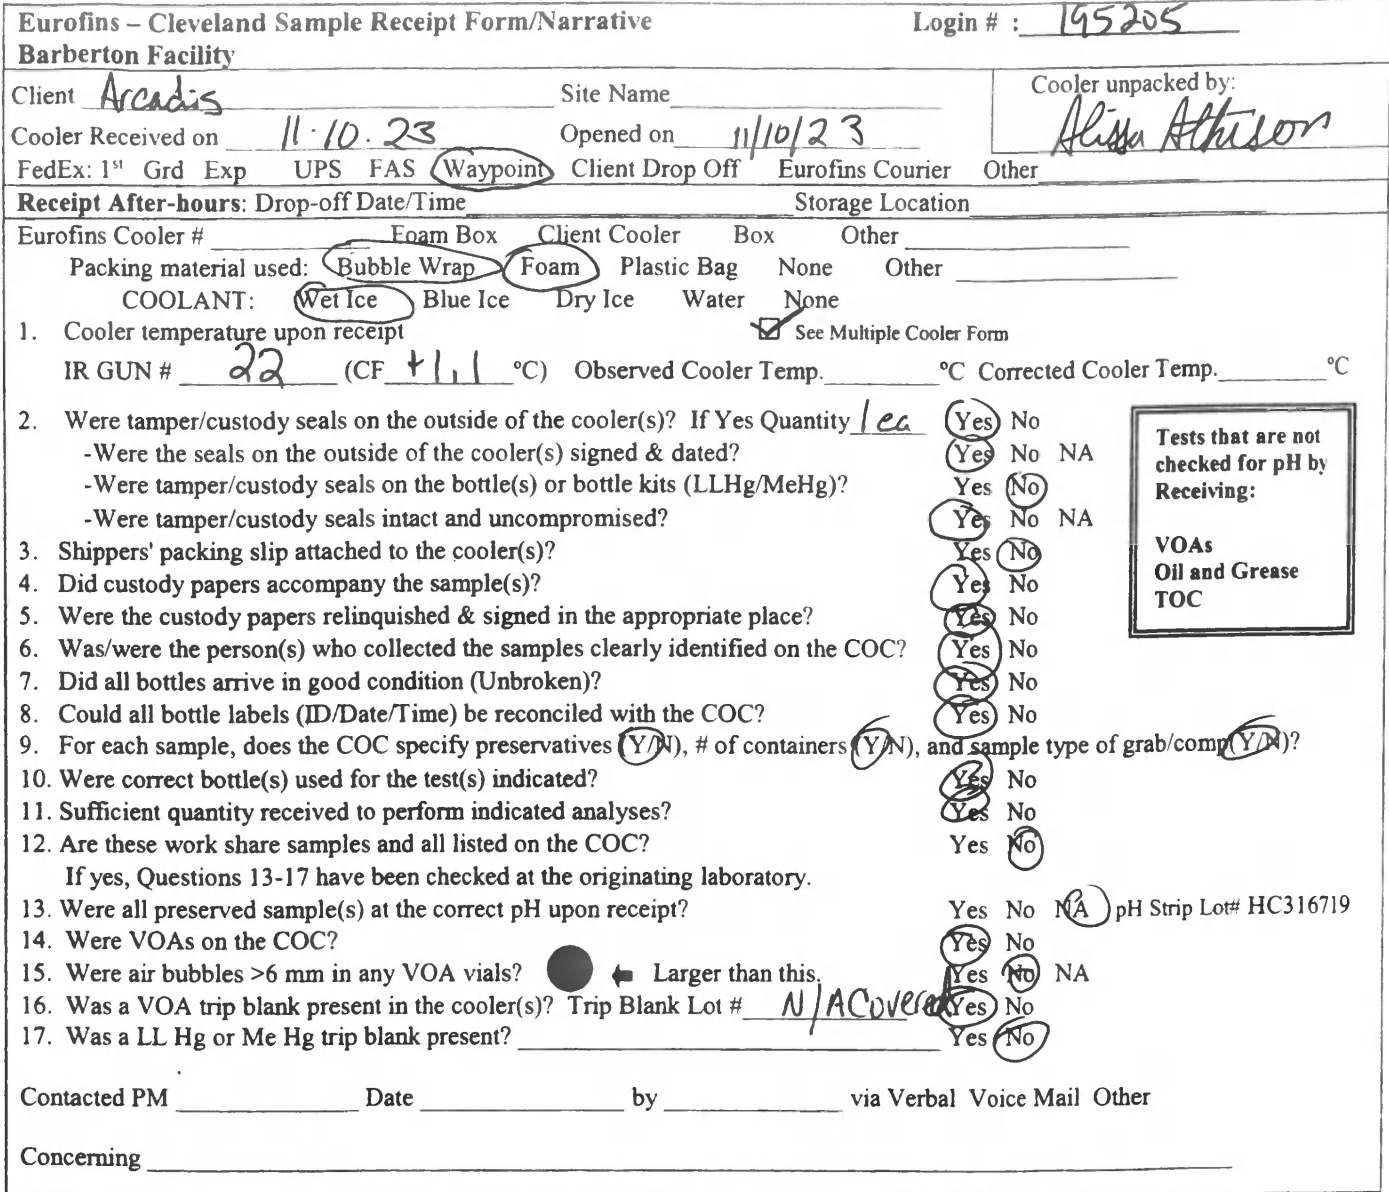 Eurofins – Cleveland Sample Receipt Form/Narrative Login # : 195205
Barberton Facility
Client Arcadis Site Name Cooler unpacked by:
Cooler Received on 11.10.23 Opened on 11/10/23 Alissa Athison
FedEx: 1st Grd Exp UPS FAS Waypoint Client Drop Off Eurofins Courier Other
Receipt After-hours: Drop-off Date/Time Storage Location
Eurofins Cooler # Foam Box Client Cooler Box Other
Packing material used: Bubble Wrap Foam Plastic Bag None Other
COOLANT: Wet Ice Blue Ice Dry Ice Water None
1. Cooler temperature upon receipt See Multiple Cooler Form
IR GUN # 22 (CF +1.1 °C) Observed Cooler Temp. °C Corrected Cooler Temp. °C
2. Were tamper/custody seals on the outside of the cooler(s)? If Yes Quantity 1 ea Yes No
-Were the seals on the outside of the cooler(s) signed & dated? Yes No NA
-Were tamper/custody seals on the bottle(s) or bottle kits (LLHg/MeHg)? Yes No
-Were tamper/custody seals intact and uncompromised? Yes No NA
3. Shippers' packing slip attached to the cooler(s)? Yes No
4. Did custody papers accompany the sample(s)? Yes No
5. Were the custody papers relinquished & signed in the appropriate place? Yes No
6. Was/were the person(s) who collected the samples clearly identified on the COC? Yes No
7. Did all bottles arrive in good condition (Unbroken)? Yes No
8. Could all bottle labels (ID/Date/Time) be reconciled with the COC? Yes No
Tests that are not
checked for pH by
Receiving:
VOAs
Oil and Grease
TOC
9. For each sample, does the COC specify preservatives (Y/N), # of containers (Y/N), and sample type of grab/comp(Y/N)?
10. Were correct bottle(s) used for the test(s) indicated? Yes No
11. Sufficient quantity received to perform indicated analyses? Yes No
12. Are these work share samples and all listed on the COC? Yes No
If yes, Questions 13-17 have been checked at the originating laboratory.
13. Were all preserved sample(s) at the correct pH upon receipt? Yes No NA pH Strip Lot# HC316719
14. Were VOAs on the COC? Yes No
15. Were air bubbles >6 mm in any VOA vials? Larger than this. Yes No NA
16. Was a VOA trip blank present in the cooler(s)? Trip Blank Lot # N/A Covered Yes No
17. Was a LL Hg or Me Hg trip blank present? Yes No
Contacted PM Date by via Verbal Voice Mail Other
Concerning